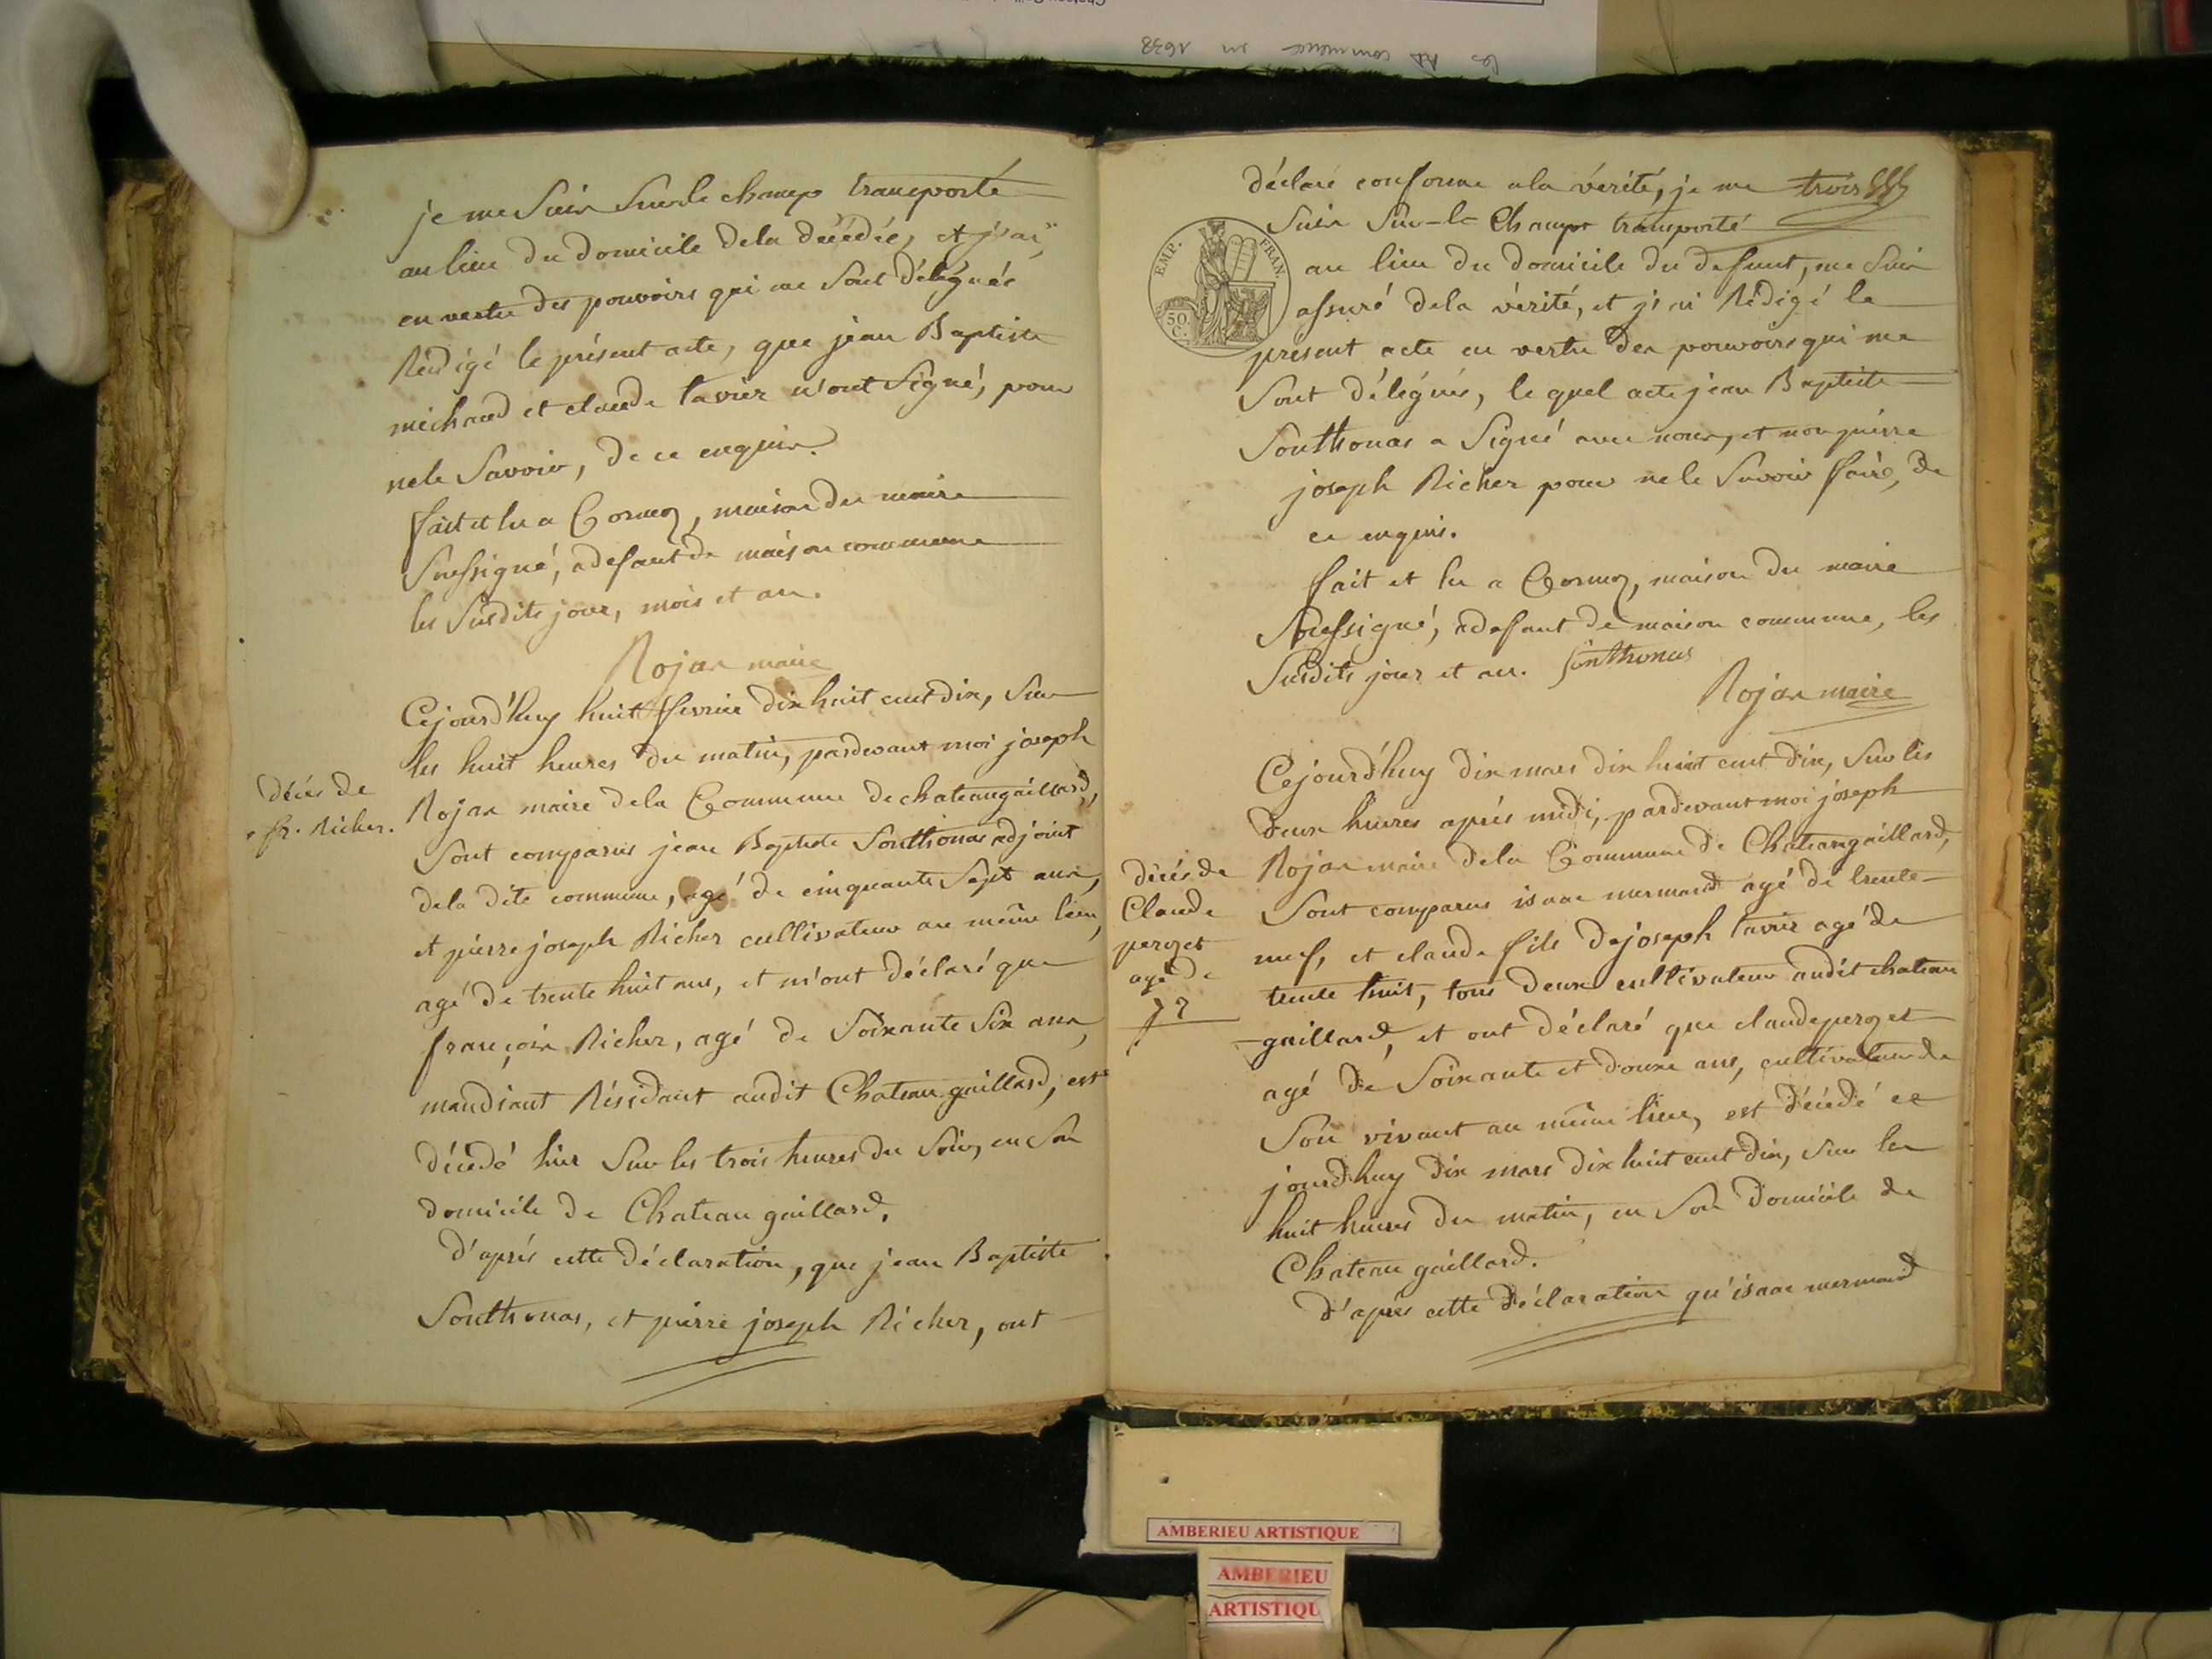 les commence en 1638
je me suis sur le champ transporté
au lieu du domicile dela décédée, et j'ai,
en vertu des pouvoirs qui me sont délégués
Rédigé le présent acte, que jean Baptiste
michaud et claude tavier n'ont signé, pour
nele savoir, de ce enquis.
fait et lu a Cormoz, maison du maire
soussigné, adefaut de maison commune
les susdits jour, mois et an.
Rojan maire
Cejourd'huy huit fevrier dix huit cent dix, sur
les huit heures du matin, pardevant moi joseph
décés de
fr. Richer.
Rojan maire dela Commune de chateaugaillard,
sont comparus jean Baptiste Sonthonas adjoint
dela dite commune, agé de cinquante sept ans,
et pierre joseph Richer cultivateur au même lieu,
agé de trente huit ans, et m'ont déclaré que
françois Richer, agé de soixante six ans,
mandiant Résidant audit Chateaugaillard, est
décédé hier sur les trois heures du soir, en son
domicile de Chateau gaillard.
d'aprés cette déclaration, que jean Baptiste
Sonthonas, et pierre joseph Richer, ont
déclaré conforme ala vérité, je me trois
suis sur-le champ transporté
EMP. FRAN.
50 C.
au lieu du domicile du defunt, me suis
assuré dela vérité, et j'ai Rédigé le
présent acte en vertu des pouvoirs qui me
sont délégués, le quel acte jean Baptiste
Sonthonas a signé avec nous, et non pierre
joseph Richer pour nele savoir faire, de
ce enquis.
fait et lu a Cormoz, maison du maire
soussigné, adefaut de maison commune, les
susdits jour et an. Sonthonas
Rojan maire
Cejourd'huy dix mars dix huit cent dix, sur les
deux heures aprés midi, pardevant moi joseph
décés de
Claude
perozet
agé de
72
Rojan maire dela Commune de Chateaugaillard,
sont comparus isaac mermand agé de trente
neuf, et claude fils dejoseph tavier agé de
trente huit, tous deux cultivateur audit chateau
gaillard, et ont déclaré que claude perozet
agé de soixante et douze ans, cultivateur de
son vivant au même lieu, est décédé ce
jourd'huy dix mars dix huit cent dix, sur les
huit heures du matin, en son domicile de
Chateau gaillard.
d'aprés cette déclaration qu'isaac mermand
AMBERIEU ARTISTIQUE
AMBERIEU
ARTISTIQU